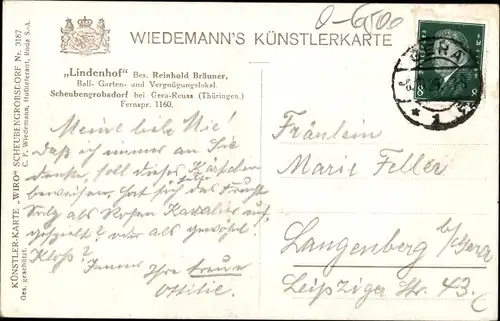 O-6500
WIEDEMANN'S KÜNSTLERKARTE
GERA
8
8
1
„Lindenhof“ Bes. Reinhold Bräuner,
Ball- Garten- und Vergnügungslokal.
Scheubengrobsdorf bei Gera-Reuss (Thüringen.)
Fernspr. 1160.
KÜNSTLER-KARTE „WIRO“ SCHEUBENGROBSDORF Nr. 3187
C. F. Wiedemann, Hoflieferant, Roda S.-A.
Ges. geschützt.
Meine liebe Mie!
Daß ich immer an Sie
denke, soll dieses Kärtchen
beweisen, hat sich das
als Rosen Kavalier auf-
gespielt? oder als gewöhnl.
Kloß?
Immer Ihre treue
Ottilie.
Fräulein
Marie Feller
Langenberg b/Gera
Leipziger Str. 43.